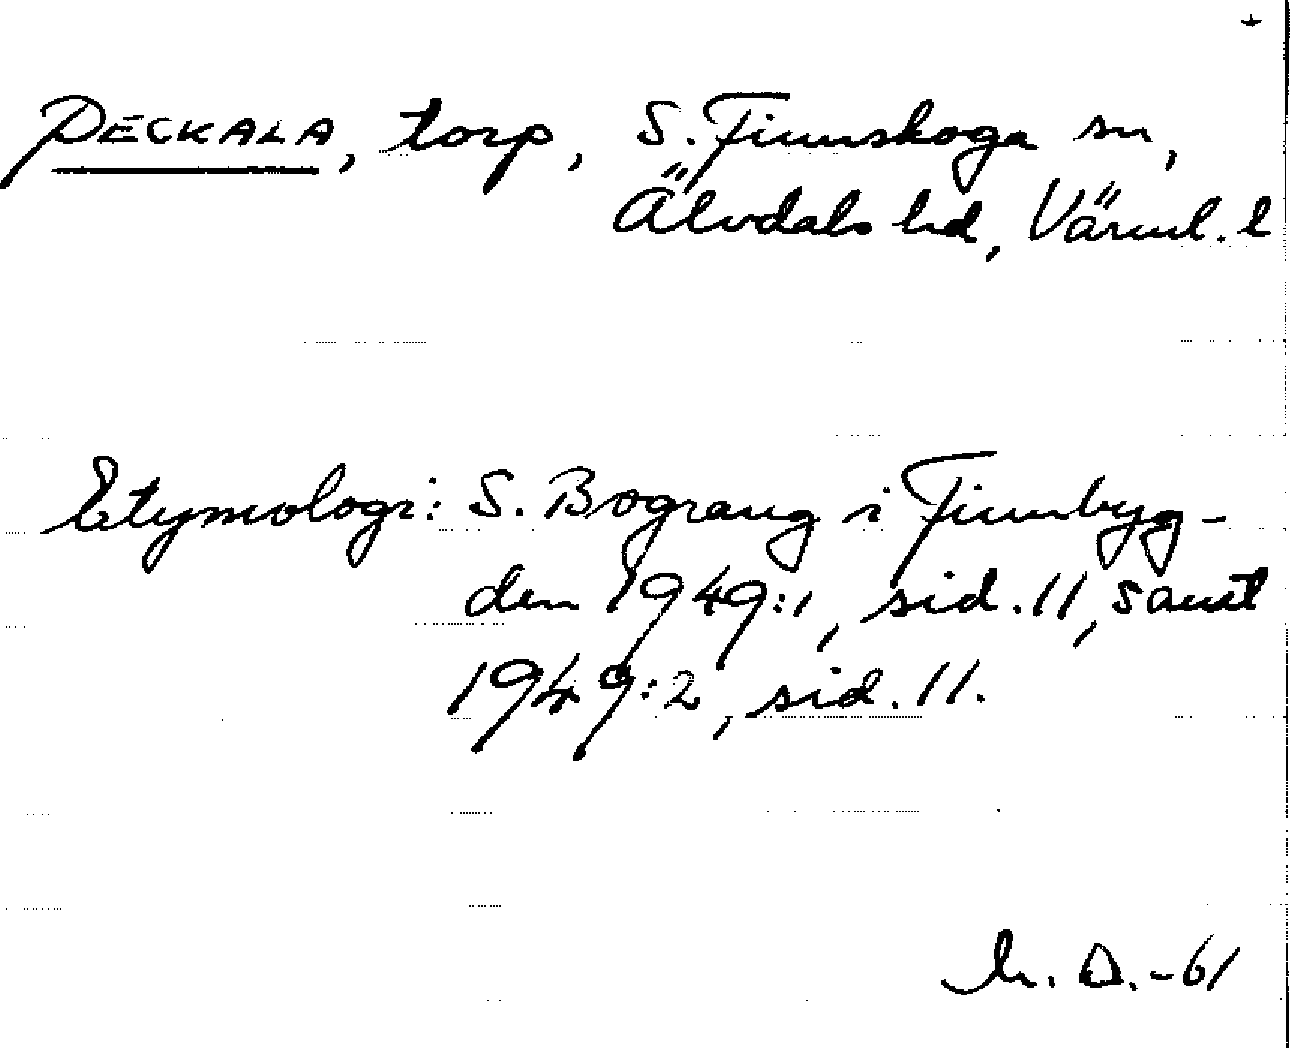 PECKALA, torp, S. Finnskoga sn,
Älvdals hd, Värml. l
Etymologi: S. Bograng i Finnbyg-
den 1949:1, sid. 11, samt
1949:2, sid. 11.
D. -61